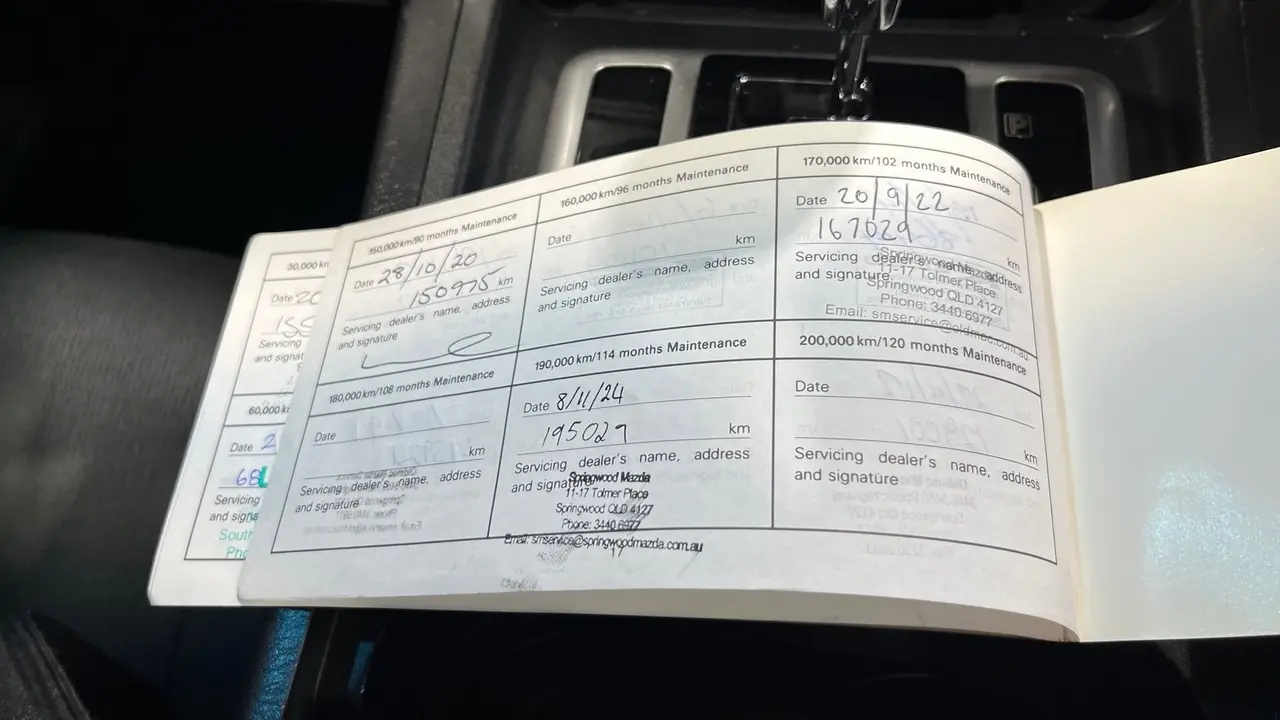 150,000 km/90 months Maintenance
Date 28/10/20
150975 km
Servicing dealer's name, address
and signature
160,000 km/96 months Maintenance
Date
km
Servicing dealer's name, address
and signature
170,000 km/102 months Maintenance
Date 20/9/22
167029
km
Servicing dealer's name, address
and signature
Springwood Mazda
11-17 Tolmer Place
Springwood QLD 4127
Phone: 3440 6977
Email: smservice@oldmac.com.au
30,000 km
Date 20
155
Servicing
and signat
60,000 k
Date 2
68
Servicing
and signa
South
Pho
180,000 km/108 months Maintenance
Date
km
Servicing dealer's name, address
and signature
190,000 km/114 months Maintenance
Date 8/11/24
195029 km
Servicing dealer's name, address
and signature
Springwood Mazda
11-17 Tolmer Place
Springwood QLD 4127
Phone: 3440 6977
Email: smservice@springwoodmazda.com.au
200,000 km/120 months Maintenance
Date
km
Servicing dealer's name, address
and signature
17
P